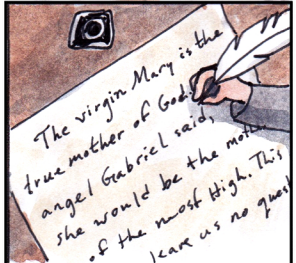 The virgin Mary is the
true mother of God.
angel Gabriel said,
she would be the mother
of the most High. This
leave us no quest